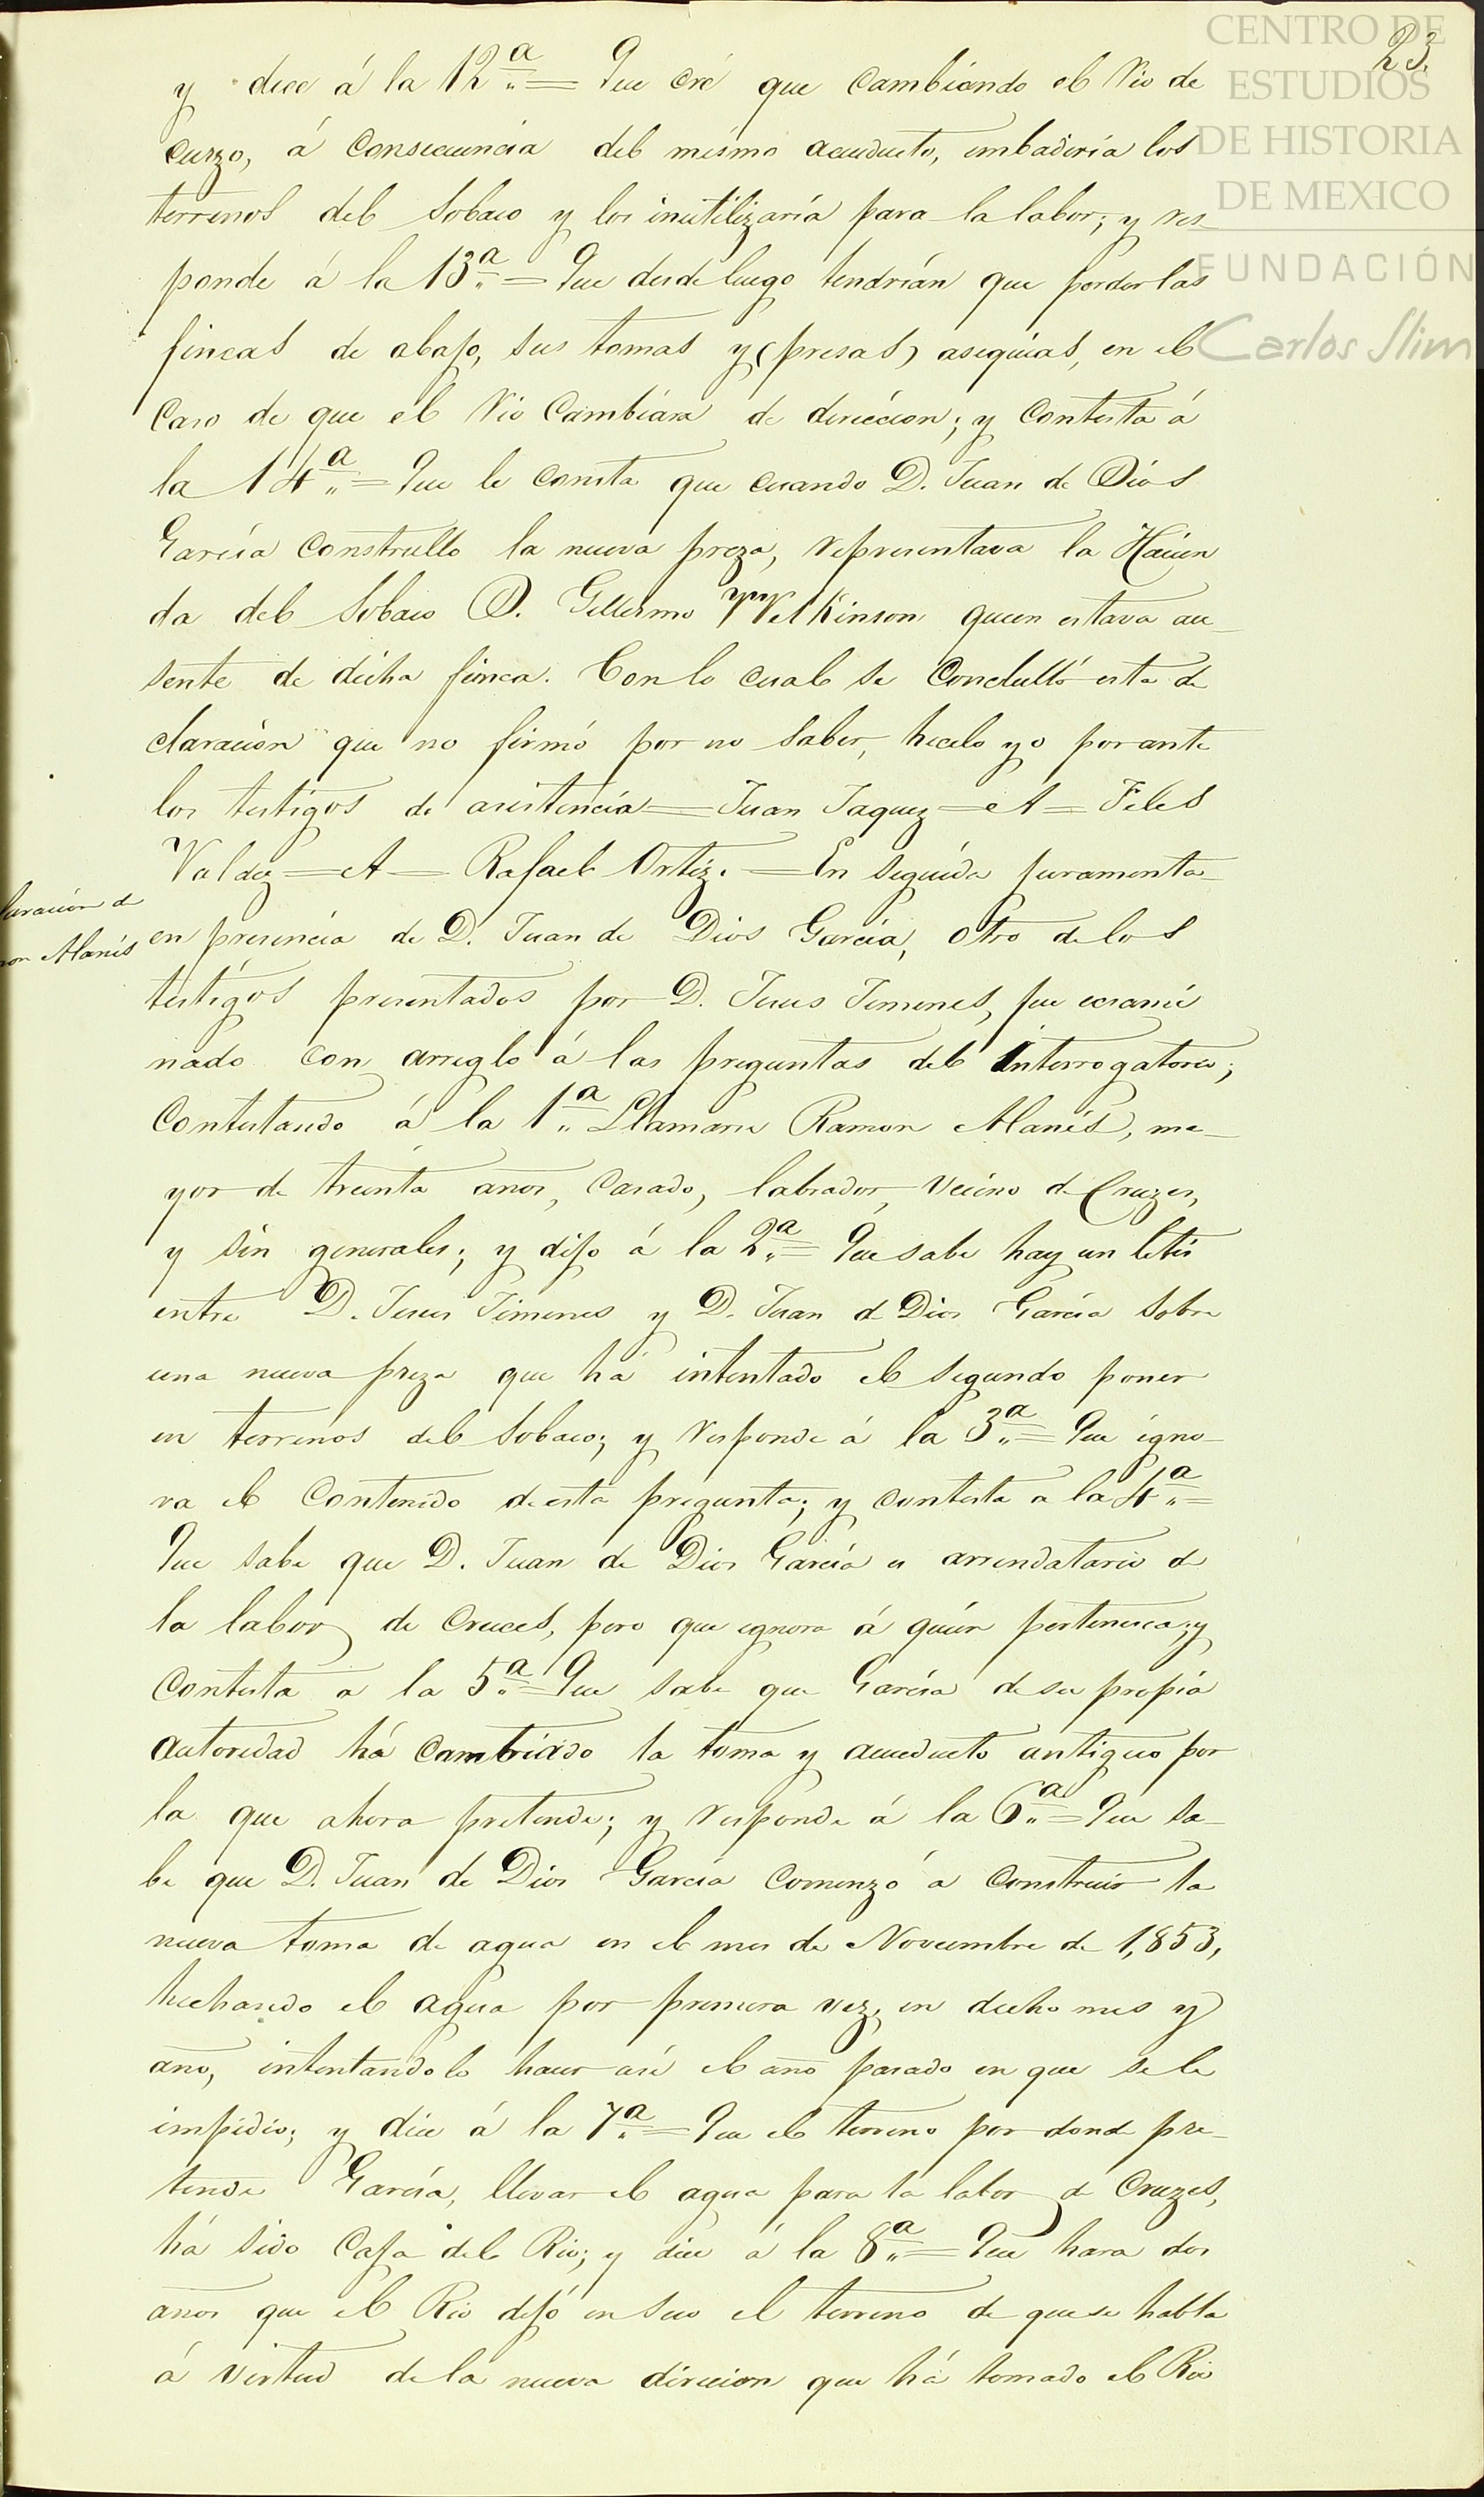 CENTRO DE
ESTUDIOS
DE HISTORIA
DE MEXICO
FUNDACIÓN
Carlos Slim
23.
y dice á la 12.ª = Que cré que cambiando el Rio de
curzo, á consecuencia del mismo acueducto, imbadiria los
terrenos del Sobaco y los inutilizaría para la labor; y res-
ponde á la 13.ª = Que desde luego tendrían que perder las
fincas de abajo, sus tomas y (presas) asequias, en el
caso de que el Rio cambiára de direccion; y contesta á
la 14.ª = Que le consta que cuando D. Juan de Dios
García construllo la nueva preza, representava la Hacien
da del Sobaco D. Gillermo Wilkinson quien estava au-
sente de dicha finca. Con lo cual se conclulló esta de
claracion que no firmó por no saber, hicelo yo por ante
los testigos de asistencia = Juan Jaquez = A = Feles
Valdez = A = Rafael Ortiz. = En seguida juramenta-
laracion de
mon Alanis
en presencia de D. Juan de Dios García, otro de los
testigos presentados por D. Jesus Jimenes, fue ecsami
nado con arreglo á las preguntas del interrogatorio;
contestando á la 1.ª Llamarse Ramon Alanis, ma-
yor de treinta años, casado, labrador, vecino de Cruzes,
y sin generales; y dijo á la 2.ª = Que sabe hay un litis
entre D. Jesus Jimenes y D. Juan de Dios García sobre
una nueva preza que há intentado el segundo poner
en terrenos del Sobaco; y responde á la 3.ª = Que igno-
ra el contenido de esta pregunta; y contesta a la 4.ª =
Que sabe que D. Juan de Dios García es arrendatario de
la labor de Cruces, pero que ignora á quien pertenesca; y
contesta a la 5.ª = Que sabe que García de su propia
autoridad há cambiado la toma y acueducto antiguo por
la que ahora pretende; y responde á la 6.ª = Que sa-
be que D. Juan de Dios García comenzó a construir la
nueva toma de agua en el mes de Noviembre de 1,853,
hechando el agua por primera vez, en dicho mes y
año, intentandolo hacer asi el año pasado en que se le
impidio; y dice á la 7.ª = Que el terreno por donde pre-
tende García, llevar el agua para la labor de Cruzes,
há sido Caja del Rio; y dice á la 8.ª = Que hara dos
años que el Rio dejó en seco el terreno de que se habla
á virtud de la nueva direcion que há tomado el Rio